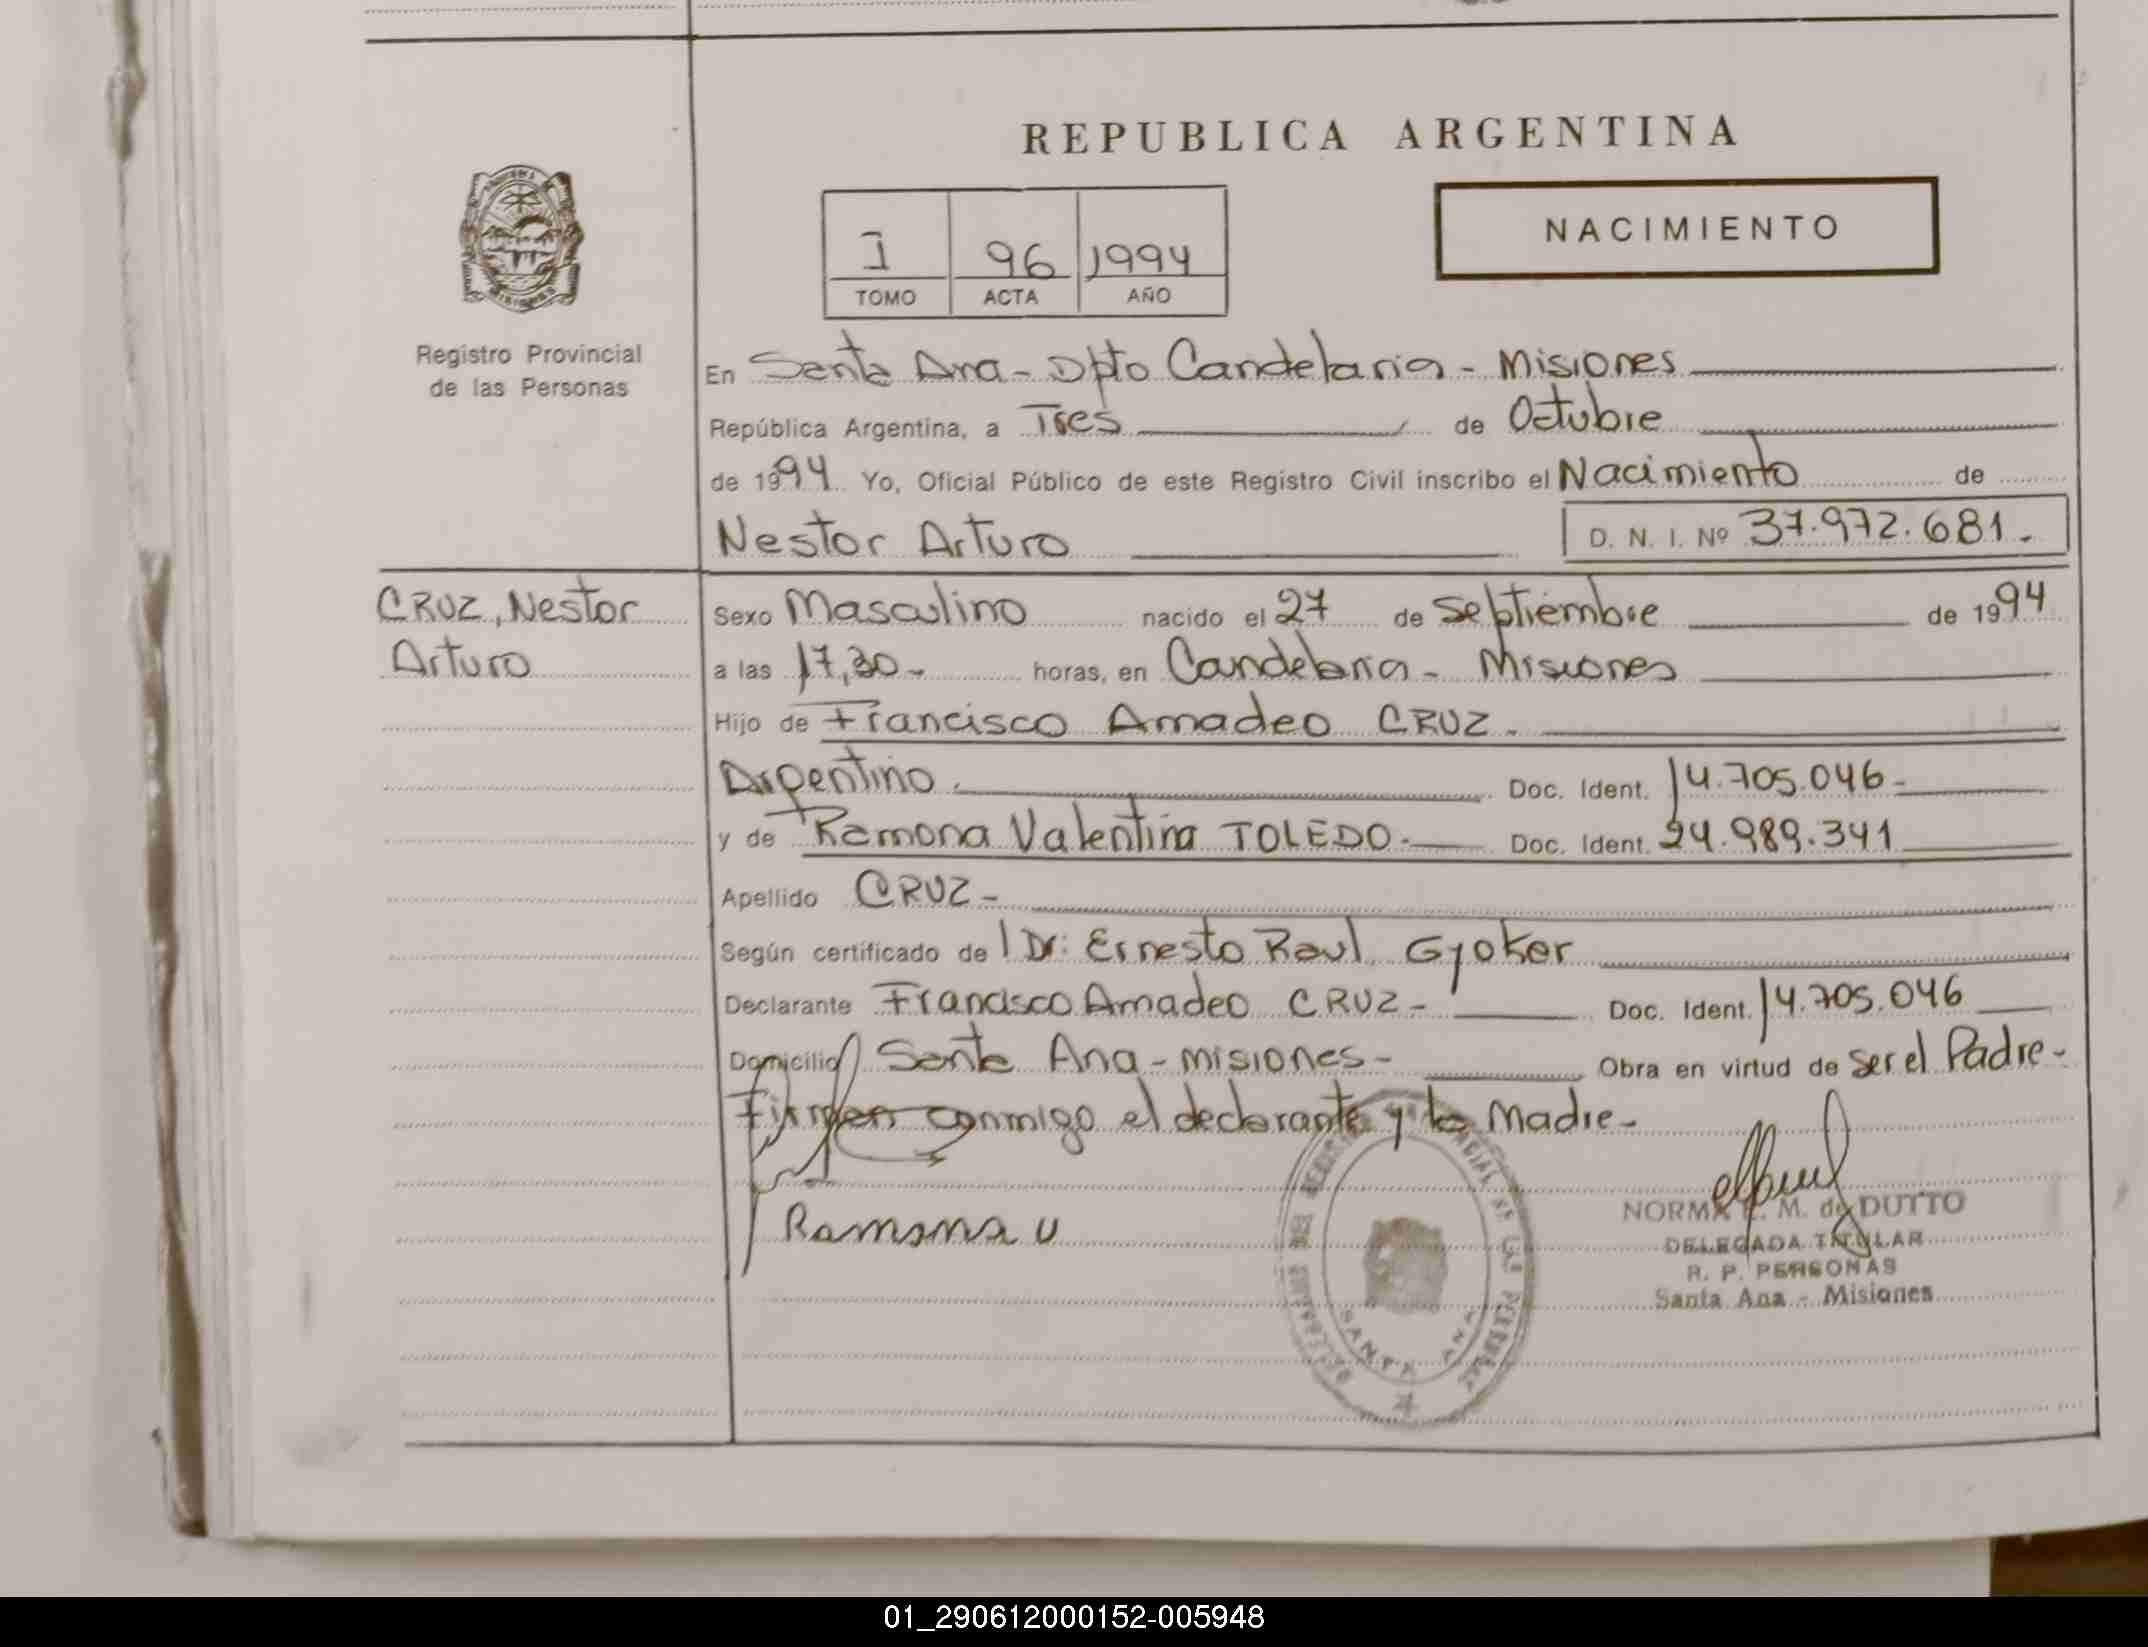 REPUBLICA ARGENTINA
NACIMIENTO
I 96 1994
TOMO ACTA AÑO
Registro Provincial
de las Personas
En Santa Ana - Dpto Candelaria - Misiones
República Argentina, a Tres de Octubre
de 1994 Yo, Oficial Público de este Registro Civil inscribo el Nacimiento de
Nestor Arturo D. N. I. Nº 37.972.681.-
CRUZ, Nestor
Arturo
Sexo Masculino nacido el 27 de Septiembre de 1994
a las 17,30- horas, en Candelaria - Misiones
Hijo de Francisco Amadeo CRUZ.-
Argentino. Doc. Ident. 14.705.046-
y de Ramona Valentina TOLEDO.- Doc. Ident. 24.989.341
Apellido CRUZ-
Según certificado de Dr: Ernesto Raul Gyoker
Declarante Francisco Amadeo CRUZ- Doc. Ident. 14.705.046
Domicilio Santa Ana - Misiones- Obra en virtud de ser el Padre-
Firman conmigo el declarante y la Madre-
Ramona V
NORMA M. de DUTTO
DELEGADA TITULAR
R. P. PERSONAS
Santa Ana - Misiones
SANTA ANA
01_290612000152-005948